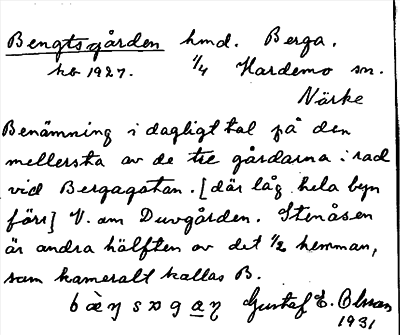 Bengtsgården hmd. Berga.
ko 1927. 1/4 Hardemo sn.
Närke
Benämning i dagligt tal på den
mellersta av de tre gårdarna i rad
vid Bergagatan. [där låg hela byn
förr] V. om Duvgården. Stenåsen
är andra hälften av det 1/2 hemman,
som kameralt kallas B.
Gustaf E. Olsson
1931